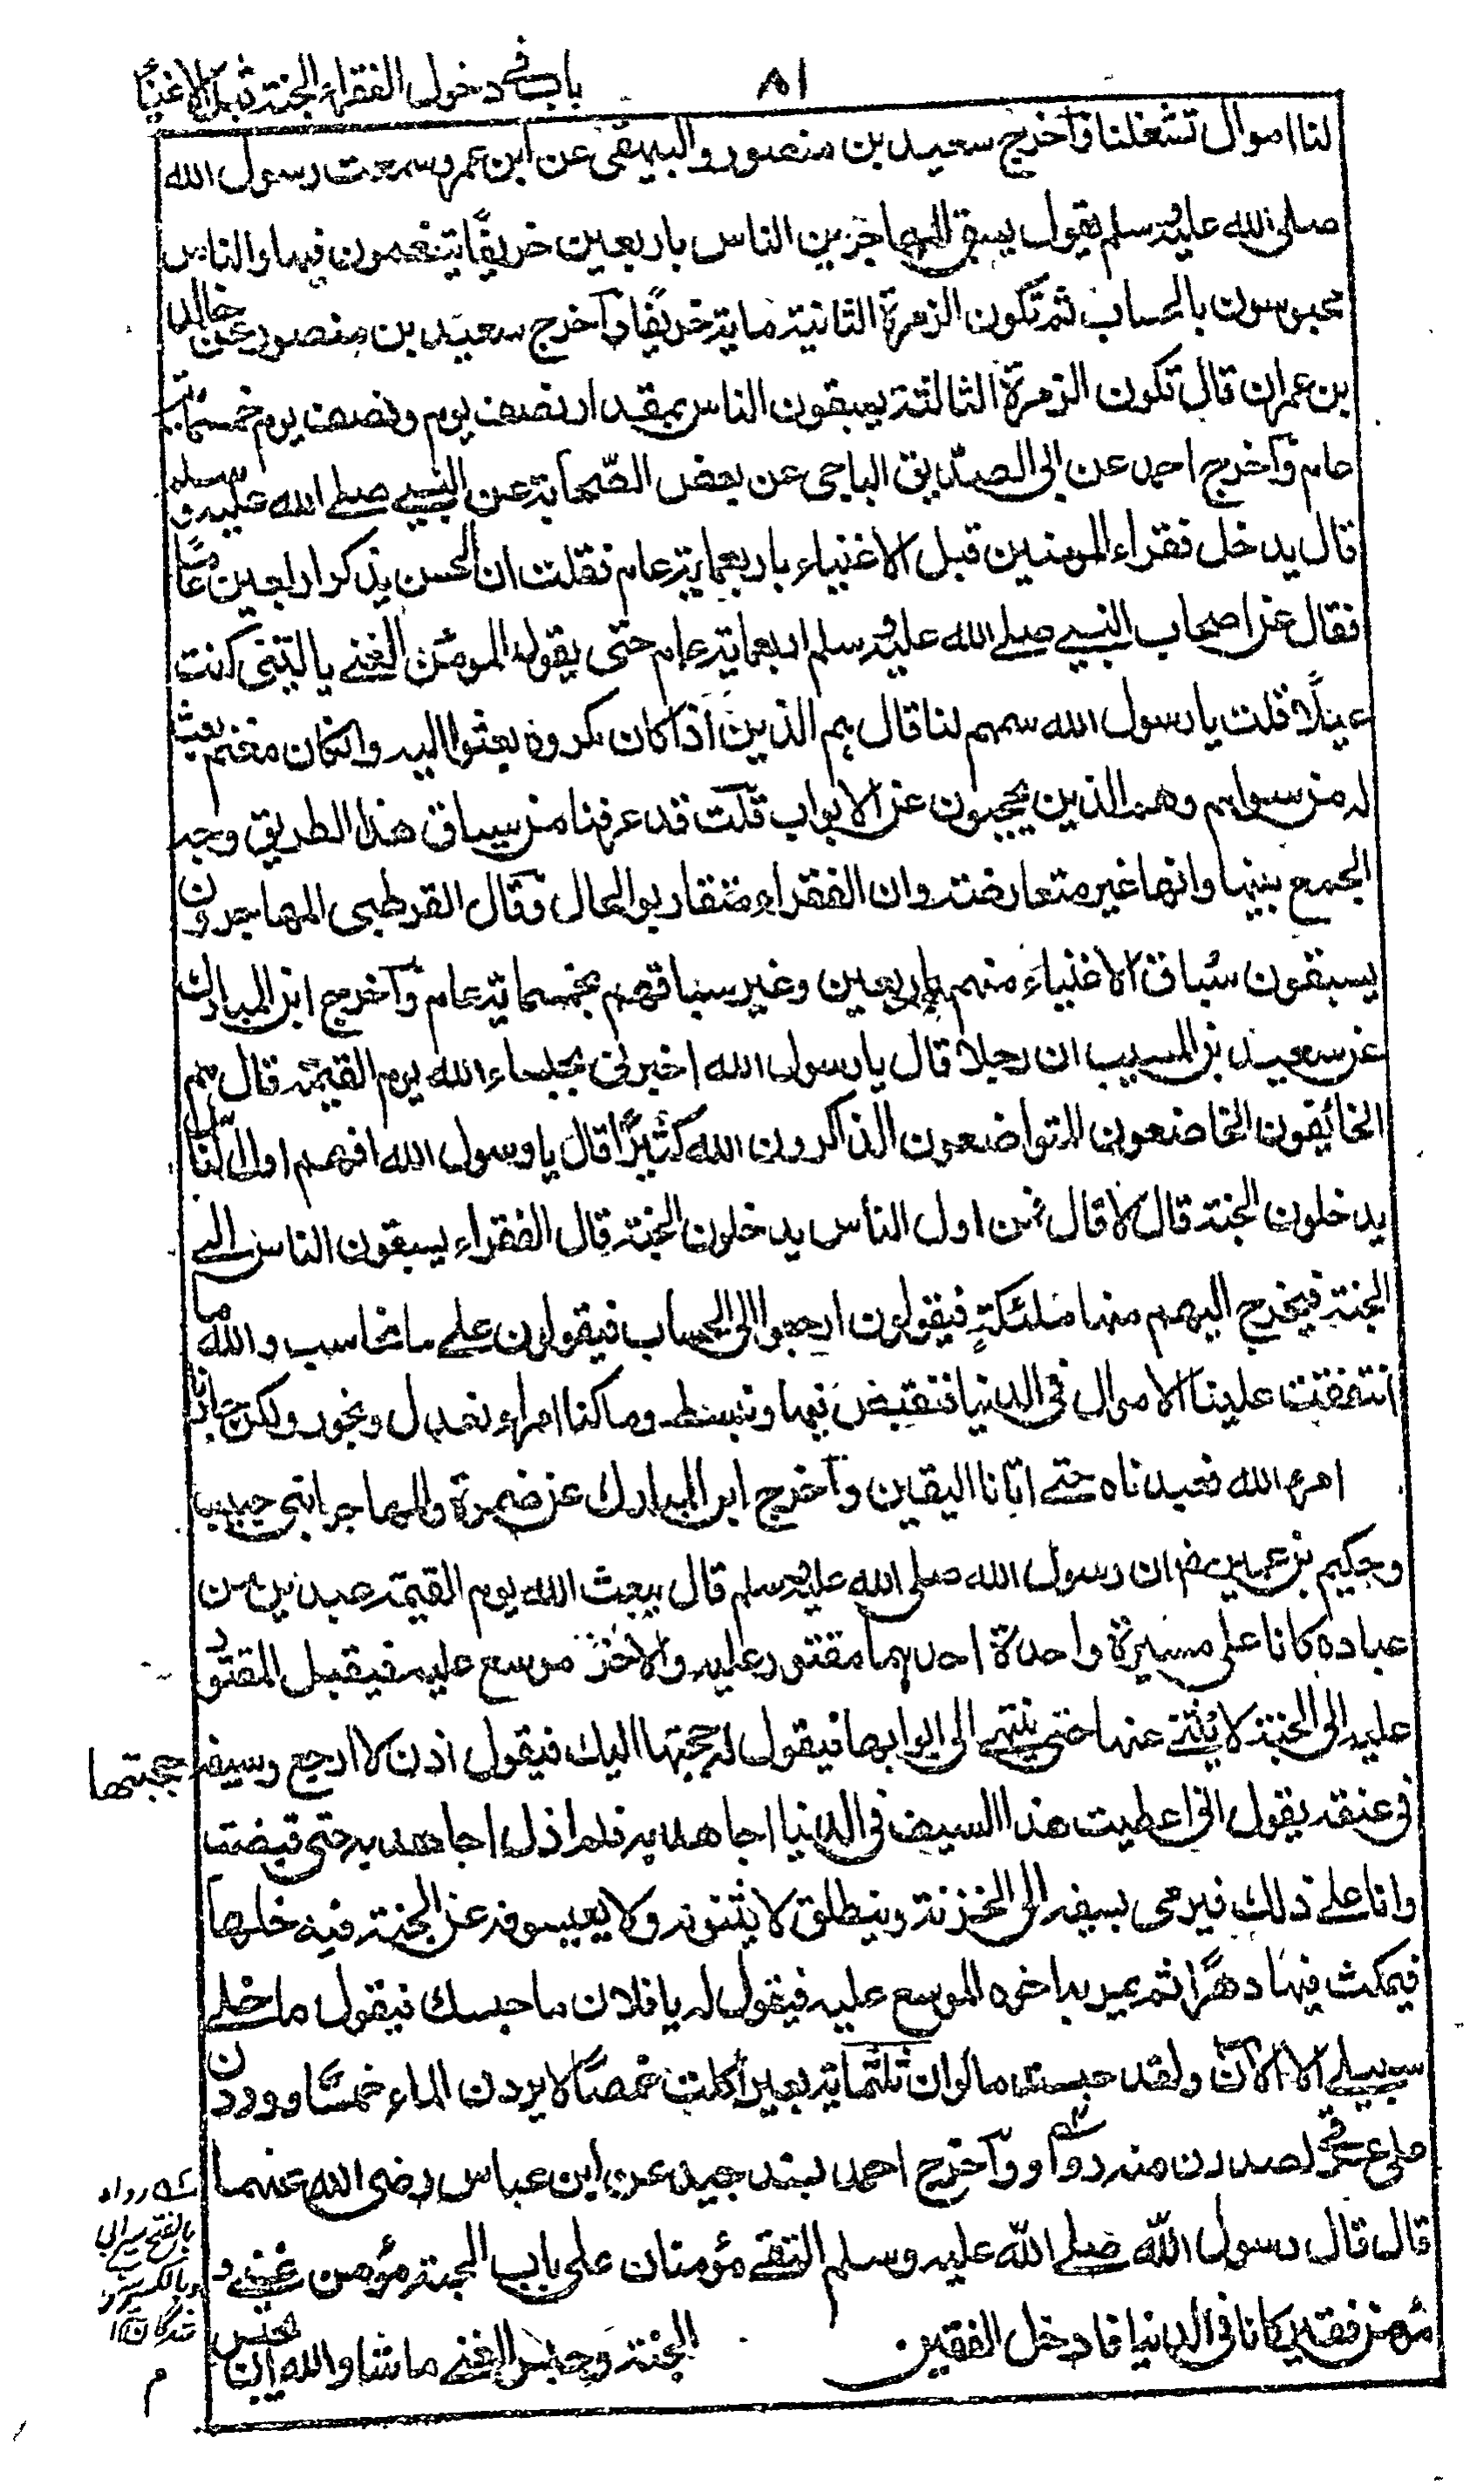 باب في دخول الفقراء الجنة قبل الاغنياء
٨١
لنا اموال تشغلنا وآخرج سعيد بن منصور والبيهقى عن ابن عمر وسمعت رسول الله
صلى الله عليه وسلم يقول يسبق المهاجرين الناس باربعين خريفًا يتنعمون فيها والناس
محبوسون بالحساب ثم تكون الزمرة الثانية ماية خريفًا وآخرج سعيد بن منصور عن خالد
بن عمران قال تكون الزمرة الثالثة يسبقون الناس بمقدار نصف يوم ونصف يوم خمسماية
عام وآخرج احمد عن ابى الصديق الباجى عن بعض الصحابة عن النبى صلے الله عليه وسلم
قال يدخل فقراء المومنين قبل الاغنياء باربعماية عام فقلت ان الحسن يذكر اربعين عامًا
فقال عن اصحاب النبى صلے الله عليه وسلم اربعماية عام حتى يقول المومن الغنے يا ليتنى كنت
عيلًا قلت يا رسول الله سمهم لنا قال هم الذين اذا كان مكروه بعثوا اليه وانكان مغنم بعث
له من سواهم وهم الذين يحجبون عن الابواب قلت قد عرفنا من سياق هذا الطريق وجه
الجمع بينها وانها غير متعارضة وان الفقراء متقاربوا الحال وقال القرطبى المهاجرون
يسبقون سُباق الاغنياء منهم باربعين وغير سباقهم بخمسماية عام وآخرج ابن المبارك
عن سعيد بن المسيب ان رجلا قال يا رسول الله اخبرنى بجلساء الله يوم القيمة قال هم
الخائفون الخاضعون المتواضعون الذاكرون الله كثيرًا قال يا رسول الله افهم اول الناس
يدخلون الجنة قال لا قال فمن اول الناس يدخلون الجنة قال الفقراء يسبقون الناس الى
الجنة فيخرج اليهم منها ملئكةٍ فيقولون ارجعوا الى الحساب فيقولون على ما نحاسب والله ما
انتفقت علينا الاموال فى الدنيا فنقبض فيها ونبسط وما كنا امراء نعدل ونجور ولكن جاءنا
امر الله فعبدناه حتى اتانا اليقين وآخرج ابن المبارك عن ضمرة والمهاجر ابنى حبيب
وحكيم بن عمير ان رسول الله صلى الله عليه وسلم قال يبعث الله يوم القيمة عبدين من
عباده كانا على مسيرة واحدة احدهما مقتور عليه والاخر موسع عليه فيقبل المقتور
عليه الى الجنة لا يثنے عنها حتى ينتهے الى ابوابها فيقول له حجبتها اليك فيقول اذن لا ارجع وسيفه
حجبتها
فى عنقه يقول انى اعطيت هذا السيف فى الدنيا اجاهد به فلم ازل اجاهد به حتى قبضت
وانا على ذلك فيرمى بسيفه الى الخزنة وينطلق لا يثنونه ولا يحبسونه عن الجنة فيدخلها
فيمكث فيها دهرًا ثم يمر به اخوه الموسع عليه فيقول له يا فلان ما حبسك فيقول ما خلے
سبيلے الا الآن ولقد حبست ما لو ان ثلثماية بعير اكلت حمصًا لا يردن الماء خمسًا ووردن
على عرقى لصدرن منه رواء وآخرج احمد بسند جيد عن ابن عباس رضى الله عنهما
قال قال رسول الله صلے الله عليه وسلم التقے مؤمنان على باب الجنة مؤمن غنے و
مؤمن فقير كانا فى الدنيا فادخل الفقير الجنة وحبس الغنے ما شاء الله ان يحبس
رواء
بالفتح سيرابى
وبالكسر